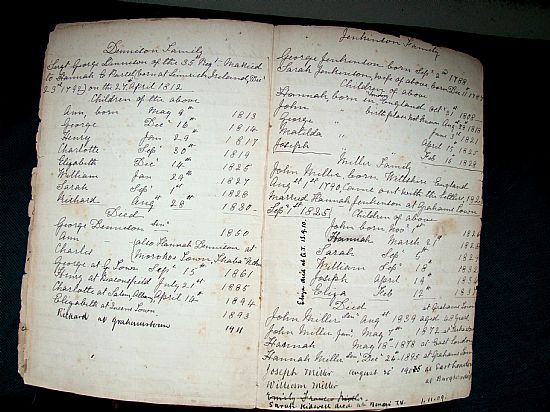 Dennison Family
Sargt George Dennison of the 35th Regt Married
to Hannah C Purcel (born at Limerick Ireland, Dec
23rd 1792) on the 27th April 1812
Children of the above
Ann, born May 9th 1813
George " Dec 16th 1814
Henry " Jan 29 1817
Charlotte " Sep 30th 1819
Elizabeth " Dec 14th 1825
William " Jan 29th 1827
Sarah " Sep 1st 1828
Richard " Aug 28th 1830
Died
George Dennison Sen 1850
Ann — (also Hannah Dennison at
Charles Thaba Nchu
George at C. Town Sep 15th 1861
Henry at Beaconsfield July 21st 1885
Charlotte at Salem, Albany April 14th 1894
Elizabeth at Queens Town 1893
Richard at Grahamstown 1911
Jenkinson Family
George Jenkinson born Sep 2nd 1788
Sarah Jenkinson, wife of above born Dec 1787
Children of above
Hannah, born in England Oct 31st 1808
John " birth place not known Aug
George " June 3rd 1821
Matilda " April 12 1825
Joseph " Feb 16 1828
Miller Family
John Miller, born Wiltshire England
Aug 1st 1790 Came out with the Settlers 1820
Married Hannah Jenkinson at Grahams Town
Sep 1st 1825
Children of above
John born Nov 1st 1826
Hannah March 27th 1828
Sarah Sep 6th 1829
William Sep 18th 1832
Joseph April 19 1834
Eliza Feb 12th
Eliza died at G.T. 13.9.10.
Died at Grahams Town
John Miller Sen Aug 1839 aged 49 years
John Miller Jun, May 7th 1872 at
Hannah May 18th 1878 at East London
Hannah Miller Sen Dec 24 1895 at Grahams Town
Joseph Miller August 26 at East London
William Miller at
Sarah Kidwell died at 1.11.09.